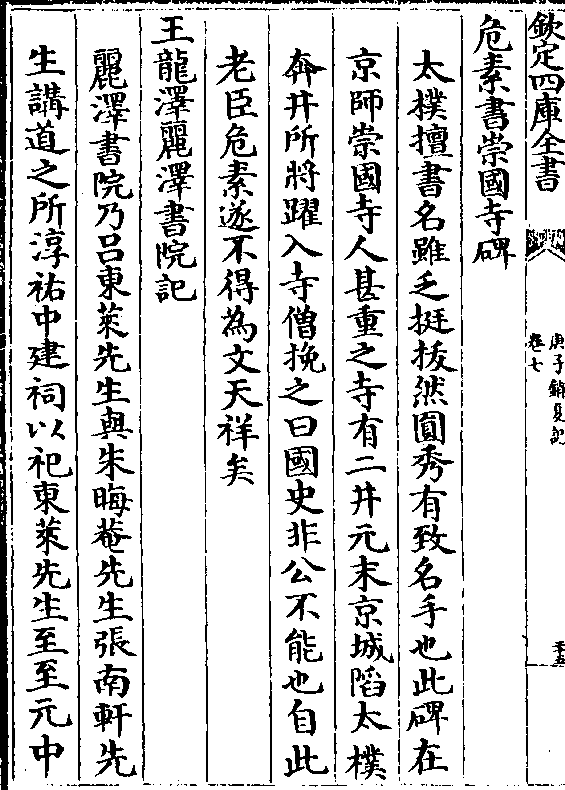 欽定四庫全書
庚子銷夏記
卷七
三十五
危素書崇國寺碑
太樸擅書名雖乏挺拔然圓秀有致名手也此碑在
京師崇國寺人甚重之寺有二井元末京城陷太樸
奔井所將躍入寺僧挽之曰國史非公不能也自此
老臣危素遂不得為文天祥矣
王龍澤麗澤書院記
麗澤書院乃吕東萊先生與朱晦菴先生張南軒先
生講道之所淳祐中建祠以祀東萊先生至至元中